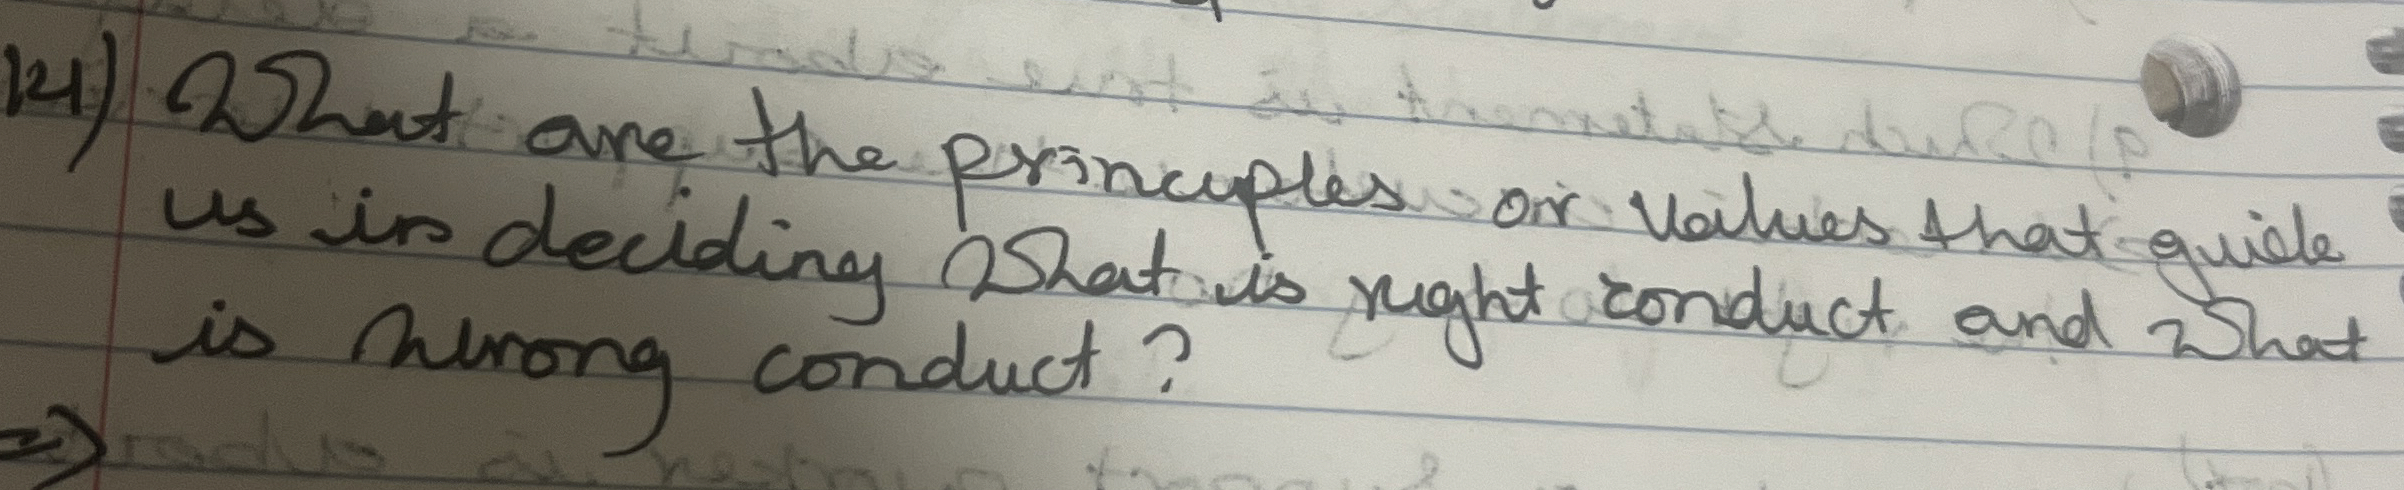 14) What are the principles or values that guide
us in deciding What is right conduct and What
is wrong conduct?
⇒